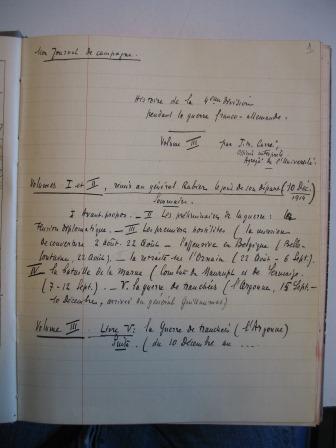 Mon Journal de campagne.
1
Histoire de la 4ème Division
pendant la guerre franco-allemande.
Volume III par J.M. Carré,
Officier interprète
Agrégé de l'Université.
Volumes I et II, remis au général Rabier le jour de son départ (10 Déc.
1914
Sommaire.
I Avant-propos. _ II Les préliminaires de la guerre : la
tension diplomatique. _ III Les premières hostilités (la mission
de couverture 2 août - 22 août _ l'offensive en Belgique (Belle-
fontaine, 22 août). _ la retraite sur l'Ornain (22 août - 6 Sept).
IV _ la bataille de la Marne (combat de Maurupt et de Sermaize.
(7 - 12 Sept.) _ V. la guerre de tranchées (l'Argonne, 15 Sept. -
10 Décembre, arrivée du général Guillaumat)
Volume III. Livre V: la Guerre de tranchées (l'Argonne)
Suite. (du 10 Décembre au ....